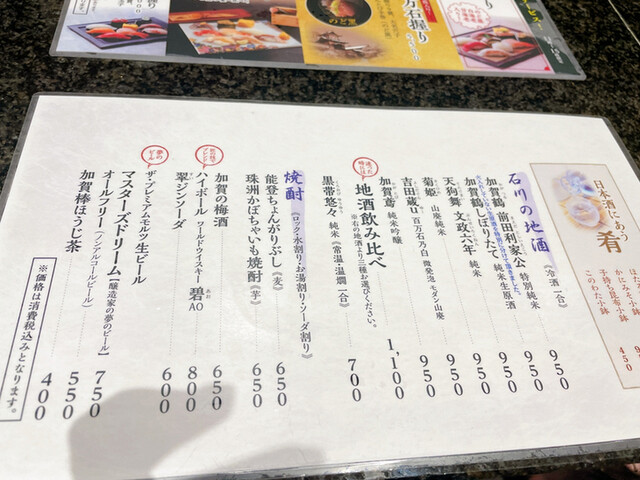 日本酒にあう
肴
かにみそ小鉢
子持ち昆布小鉢
このわた小鉢
450
石川の地酒
《冷酒 一合》
加賀鶴 前田利家公 特別純米
950
加賀鶴 しぼりたて 純米生原酒
950
天狗舞 文政六年 純米
950
菊姫 山廃純米
950
吉田蔵u 百万石乃白 微発泡 モダン山廃
950
加賀鳶 純米吟醸
950
迷った時には!
地酒飲み比べ
1,100
※右の地酒より三種お選びください。
黒帯悠々 純米《常温・温燗 一合》
700
焼酎
(ロック・水割り・お湯割り・ソーダ割り)
能登ちょんがりぶし《麦》
650
珠洲かぼちゃいも焼酎《芋》
650
加賀の梅酒
650
ハイボール ワールドウイスキー 碧AO
あお
800
翠ジンソーダ
600
夢のビール
ザ・プレミアムモルツ 生ビール
マスターズドリーム【醸造家の夢のビール】
750
オールフリー(ノンアルコールビール)
550
加賀棒ほうじ茶
400
※価格は消費税込みとなります。
百万石握り
のど黒